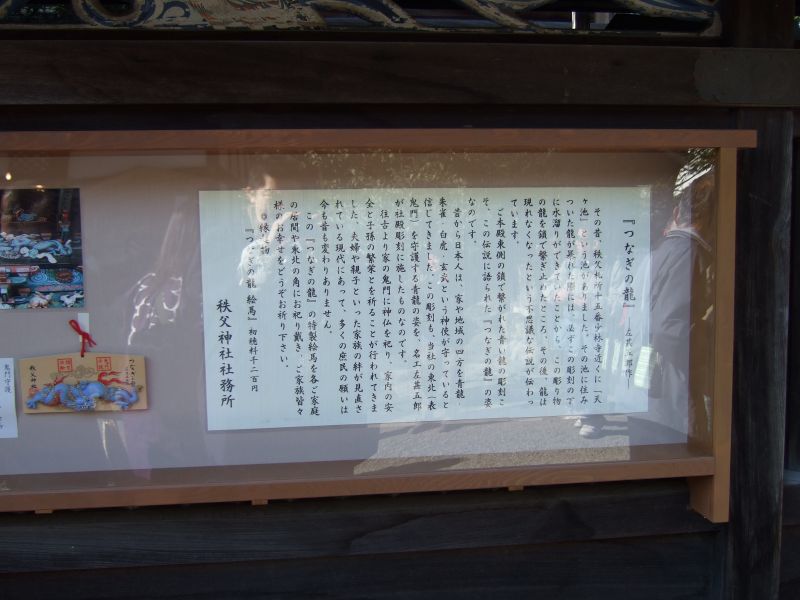 『つなぎの龍』 ―左甚五郎作―
その昔、秩父札所十五番少林寺近くに「天
ヶ池」という池がありました。その池に住み
ついた龍が暴れた際には、必ずこの彫刻の下
に水溜りができていたことから、この彫り物
の龍を鎖で繋ぎ止めたところ、その後、龍は
現れなくなったという不思議な伝説が伝わっ
ています。
ご本殿東側の鎖で繋がれた青い龍の彫刻こ
そ、この伝説に語られた『つなぎの龍』の姿
なのです。
昔から日本人は、家や地域の四方を青龍・
朱雀・白虎・玄武という神使が守っていると
信じてきました。この彫刻も、当社の東北(表
鬼門)を守護する青龍の姿を、名工左甚五郎
が社殿彫刻に施したものなのです。
往古より家の鬼門に神仏を祀り、家内の安
全と子孫の繁栄とを祈ることが行われてきま
した。夫婦や親子といった家族の絆が見直さ
れている現代にあって、多くの庶民の願いは
今も昔も変わりありません。
この『つなぎの龍』の特製絵馬を各ご家庭
の居間や東北の角にお祀り戴き、ご家族皆々
様のお幸せをどうぞお祈り下さい。
◎縁起物
『つなぎの龍 絵馬』 初穂料千二百円
秩父神社社務所
つなぎの龍
秩父神社
鬼門守護